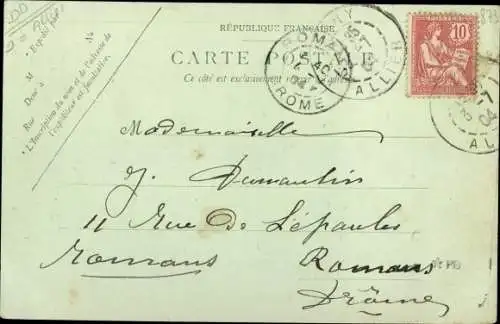 RÉPUBLIQUE FRANÇAISE
CARTE POSTALE
Ce côté est exclusivement
N°
Expéditeur
M
Demeure à
Rue
L'inscription du nom et de l'adresse de
l'expéditeur est facultative.
ROMANS
04
DROME
ALLIER
10
04
AL
Mademoiselle
J. Dumantin
11 Rue De L'épaules
Romans Romans
Drôme